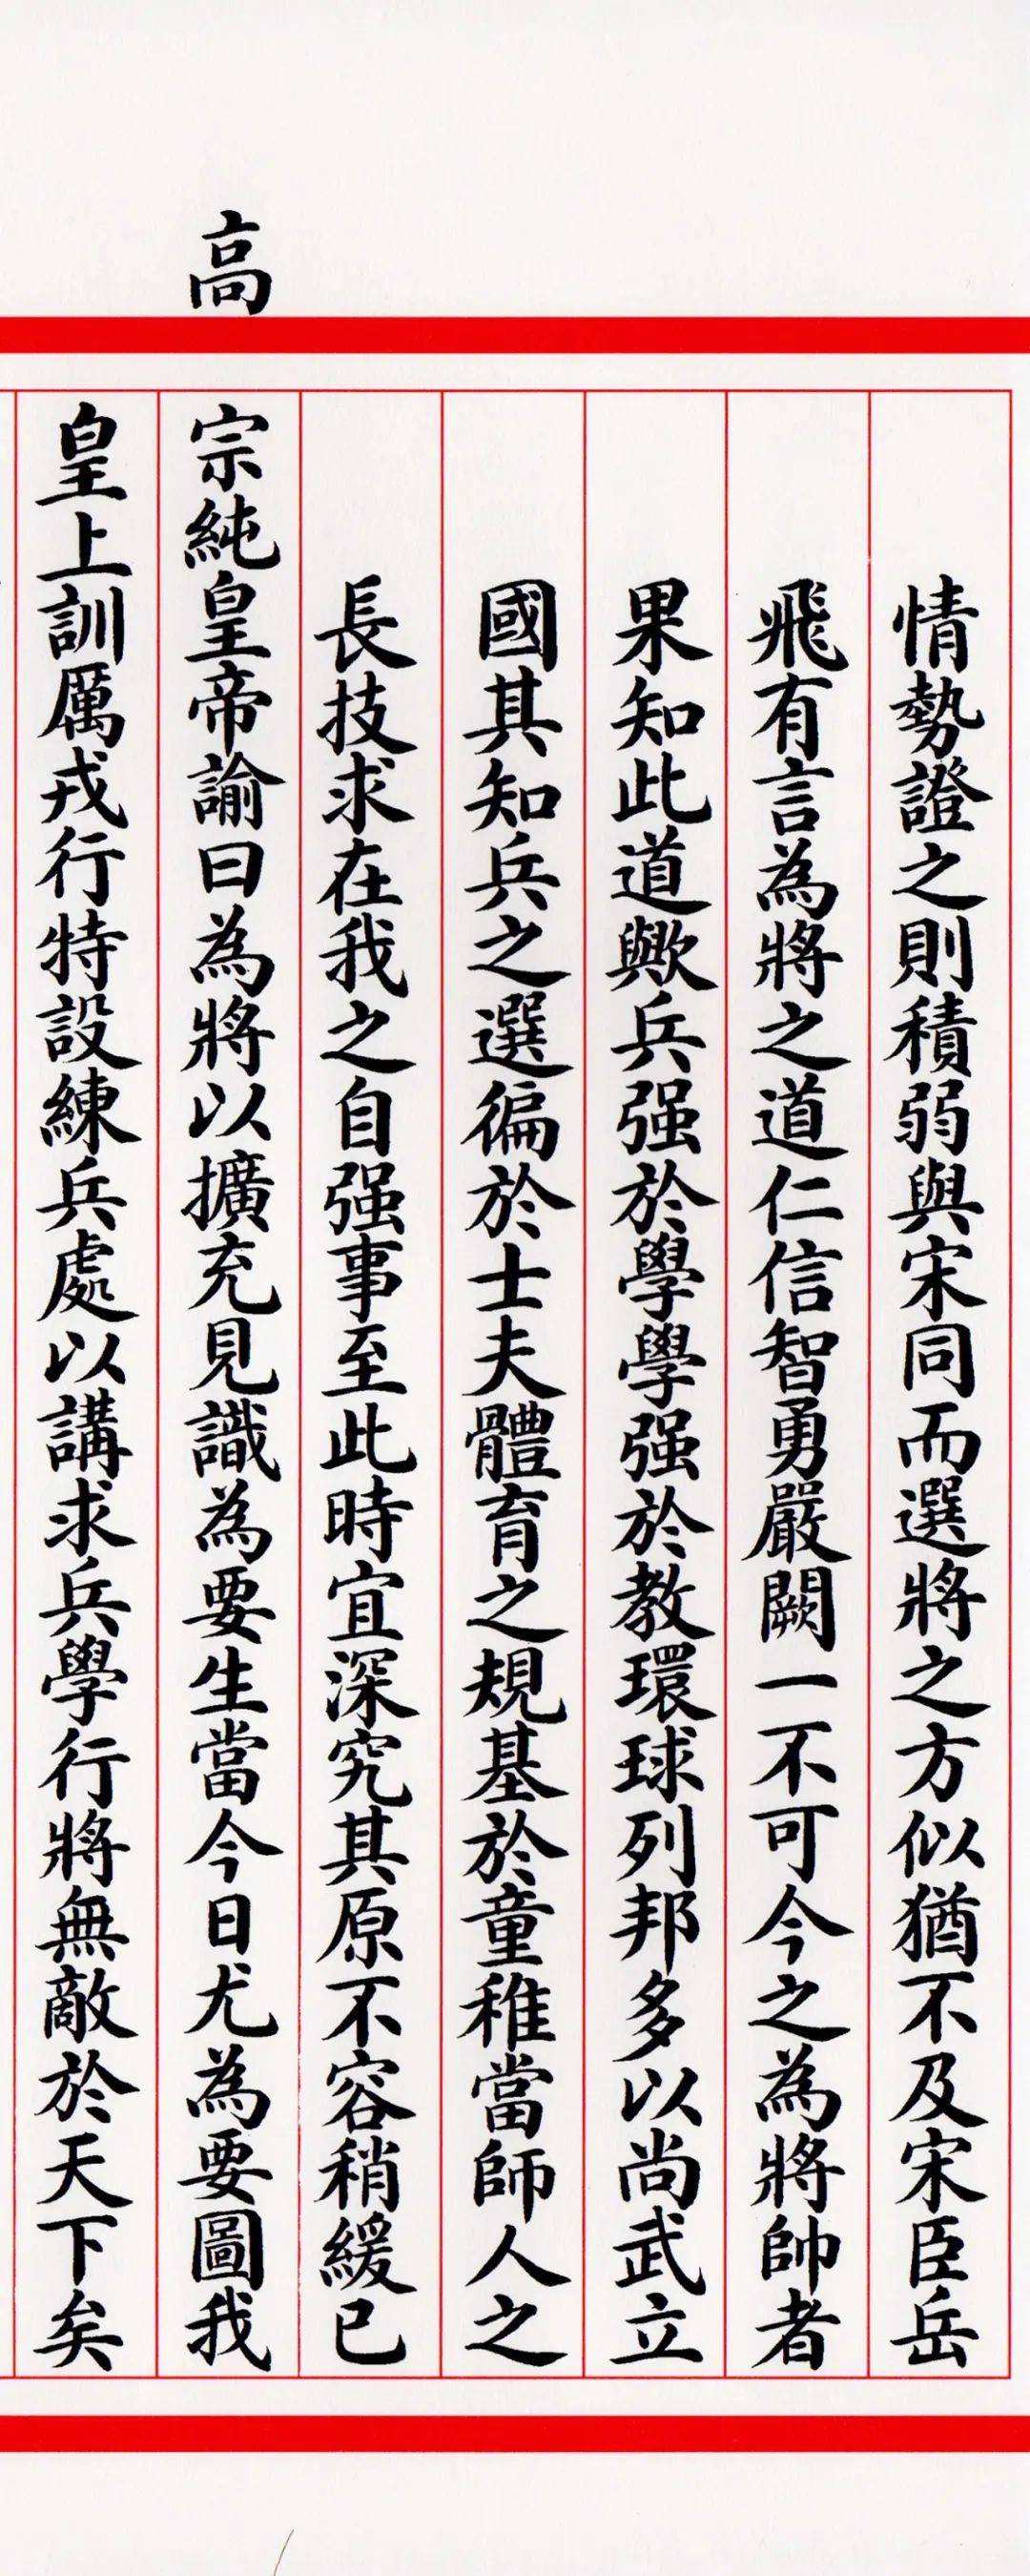 情勢證之則積弱與宋同而選將之方似猶不及宋臣岳
飛有言為將之道仁信智勇嚴闕一不可今之為將帥者
果知此道歟兵强於學學强於教環球列邦多以尚武立
國其知兵之選徧於士夫體育之規基於童稚當師人之
長技求在我之自强事至此時宜深究其原不容稍緩已
高宗純皇帝諭曰為將以擴充見識為要生當今日尤為要圖我
皇上訓厲戎行特設練兵處以講求兵學行將無敵於天下矣